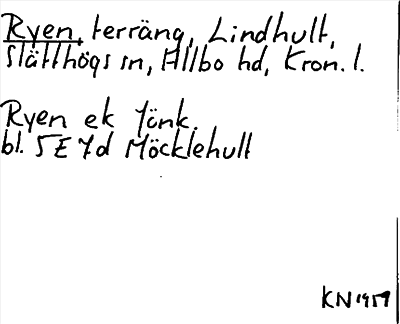 Ryen, terräng, Lindhult,
Slätthögs sn, Allbo hd, Kron. l.
Ryen ek Jönk.
bl. 5E 7d Möcklehult
KN 1959